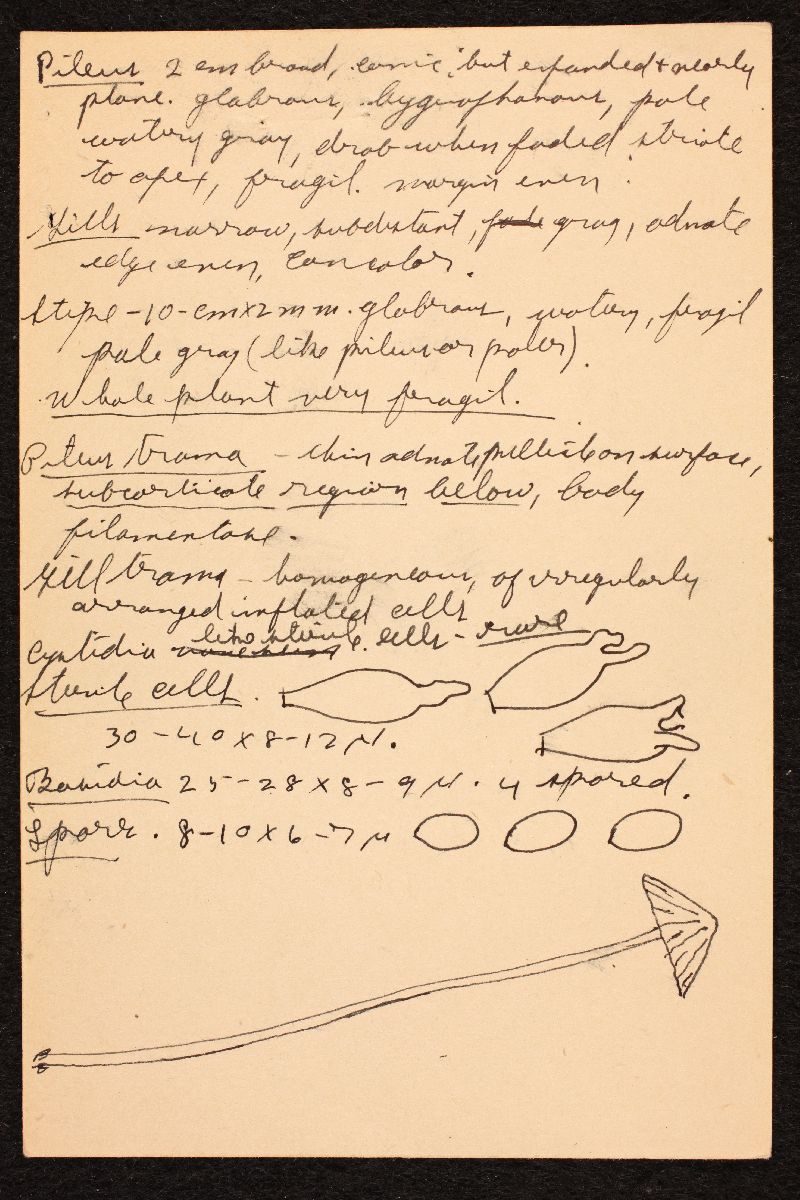 Pileus 2 cm broad, conic, but expanded + nearly
plane. glabrous, hygrophanous, pale
watery gray, drab when faded striate
to apex, fragil. margin even.
Gills narrow, subdistant, pale gray, adnate
edge even, concolor.
Stipe - 10 - cm x 2 m m. glabrous, watery, fragil
pale gray (like pileus or paler).
Whole plant very fragil.
Pileus trama - thin adnate pellicle on surface,
subcorticate region below, body
filamentose.
Gill trama - homogeneous, of irregularly
arranged inflated cells
like sterile
Cystidia cells - rare
Sterile cells.
30 - 40 x 8 - 12 µ.
Basidia 25 - 28 x 8 - 9 µ. 4 spored.
Spores. 8 - 10 x 6 - 7 µ